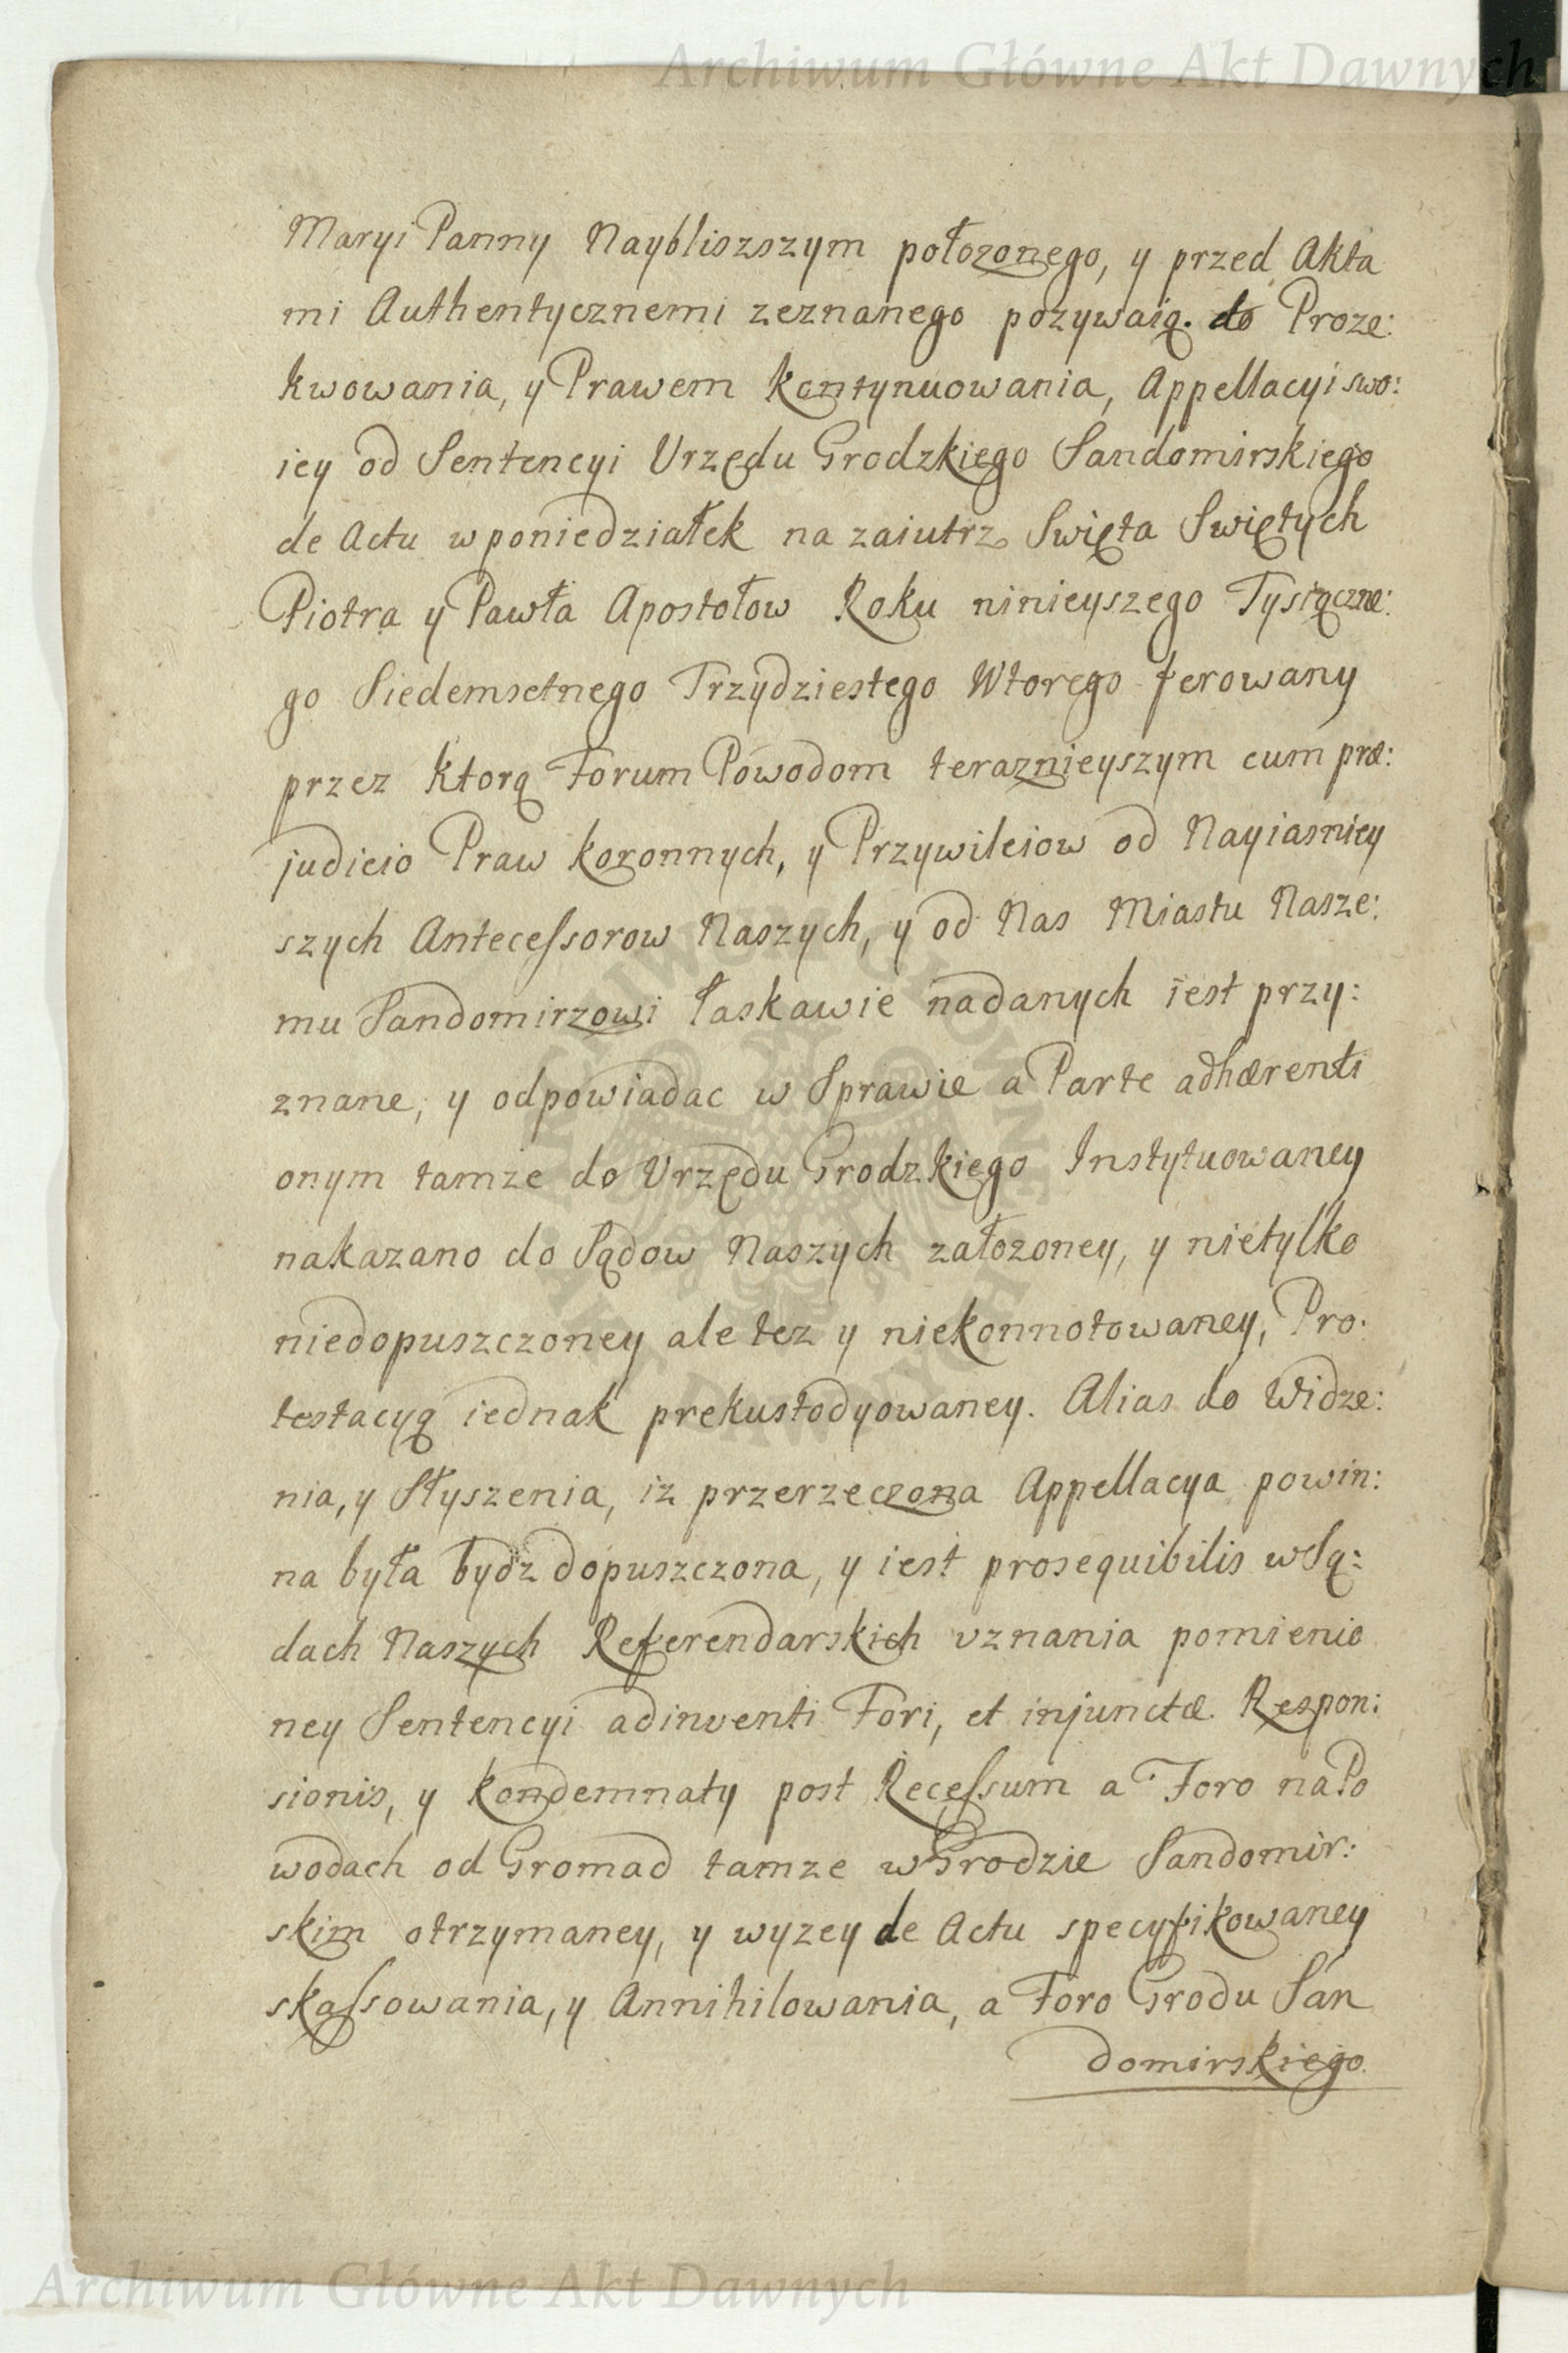 Archiwum Główne Akt Dawnych
Maryi Panny Naybliszszym położonego, y przed Akta
mi Authentycznemi zeznanego pozywaią. do Proze:
kwowania, y Prawem kontynuowania, Appellacyi swo:
iey od Sentencyi Vrzędu Grodzkiego Sandomirskiego
de Actu w poniedziałek na zaiutrz Swięta Swiętych
Piotra y Pawła Apostołow Roku ninieyszego Tysiączne:
go Siedemsetnego Trzydziestego Wtorego ferowany
przez ktorą Forum Powodom teraznieyszym cum præ:
judicio Praw koronnych, y Przywileiow od Nayiasniey
szych Anteceſsorow Naszych, y od Nas Miastu Nasze:
mu Sandomirzowi łaskawie nadanych iest przy:
znane, y odpowiadac w Sprawie a Parte adhærenti
onym tamze do Vrzędu Grodzkiego Instytuowaney
nakazano do Sądow Naszych załozoney, y nietylko
niedopuszczoney ale tez y niekonnotowaney, Pro:
testacyą iednak prekustodyowaney. Alias do Widze:
nia, y Słyszenia, iz przerzeczona Appellacya powin:
na była bydz dopuszczona, y iest prosequibilis w Są:
dach Naszych Referendarskich vznania pomienio
ney Sentencyi adinventi Fori, et injunctæ Respon:
sionis, y kondemnaty post Receſsum a Foro na Po
wodach od Gromad tamze w Grodzie Sandomir:
skim otrzymaney, y wyzey de Actu specyfikowaney
skaſsowania, y Annihilowania, a Foro Grodu San
domirskiego.
Archiwum Główne Akt Dawnych